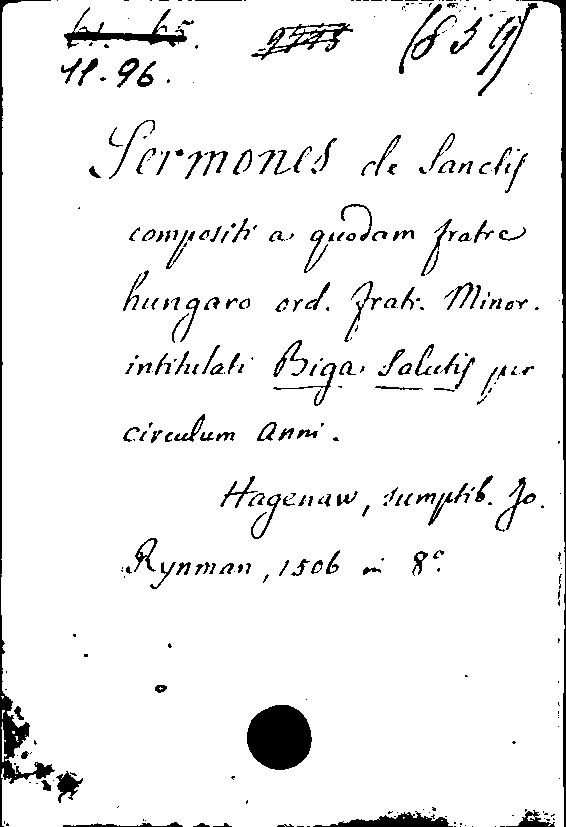 (859)
11.96.
Sermones de Sanctis
compositi a quodam fratre
hungaro ord. fratr. Minor.
intitulati Biga Salutis per
circulum anni.
Hagenaw, sumptib. Jo.
Rynman, 1506 in 8°.